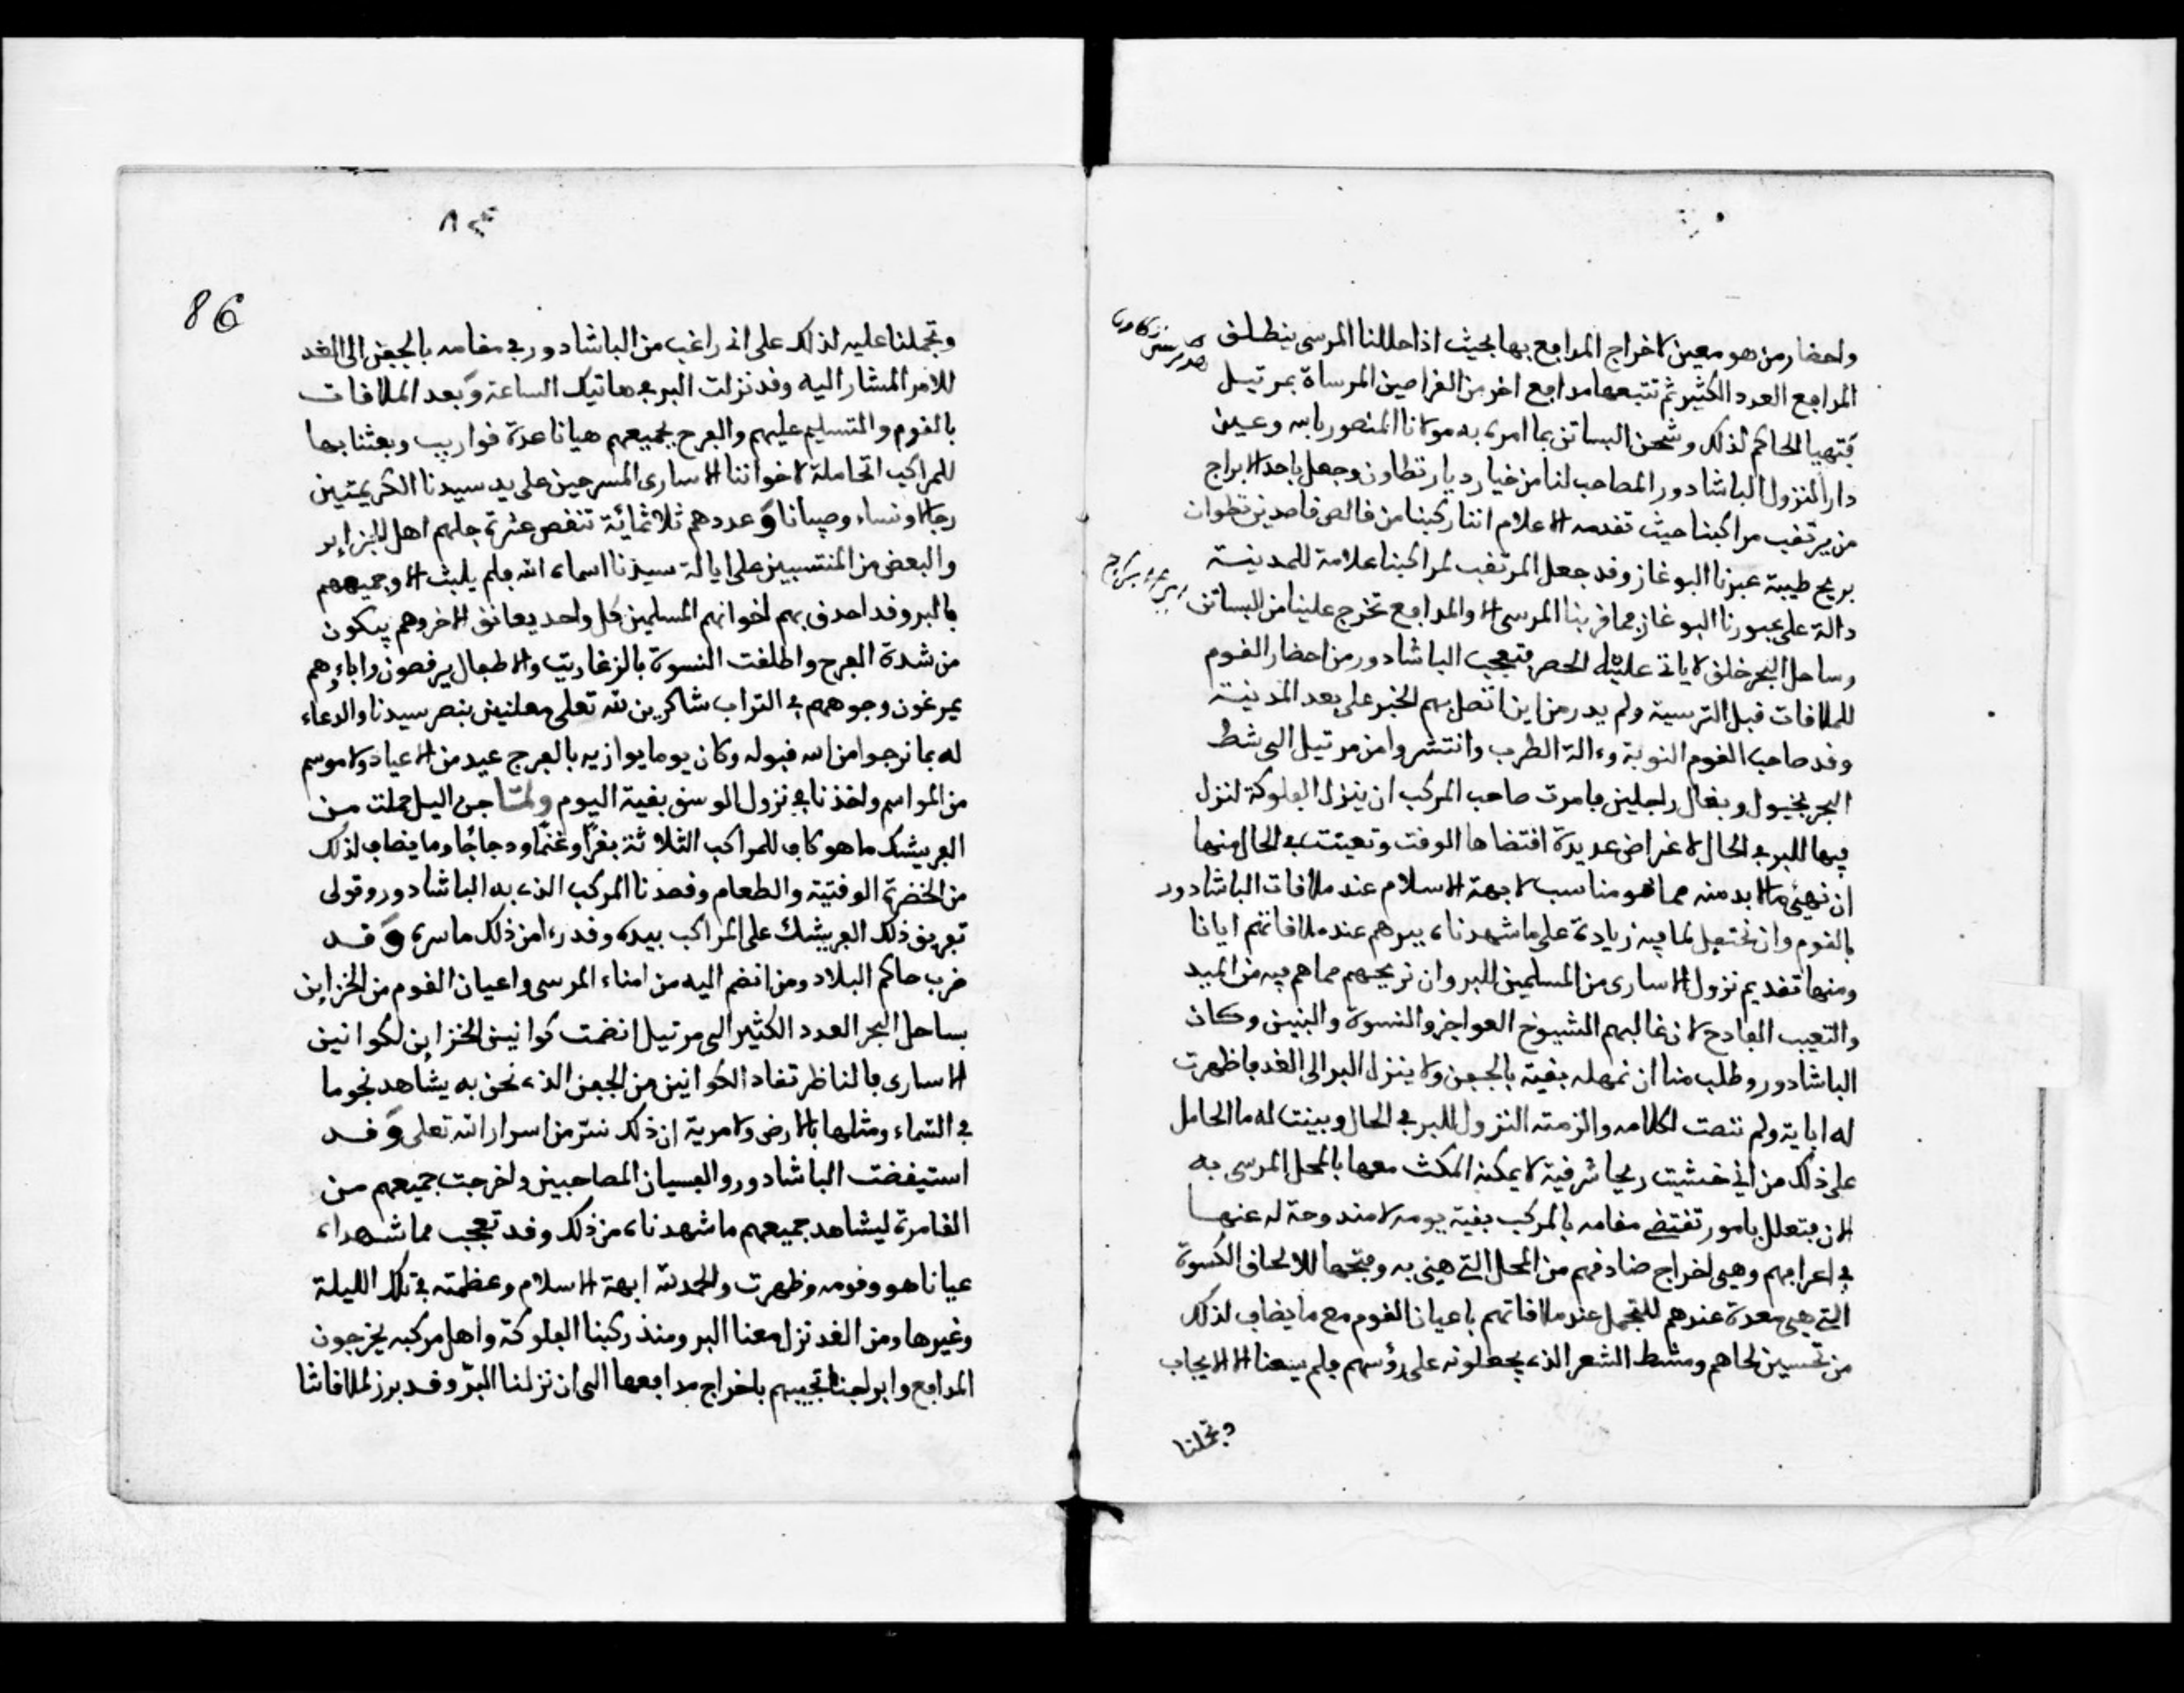 واحضار من هو معين لاخراج المدافع بها بحيث اذا حللنا المرسى ينطلق
المدافع العدد الكثير ثم تتبعها مدافع اخر من القراصين المرساة بمرتيل
فتهيا الحاكم لذلك وشحن البساتن بما امره به مولانا المنصور بالله وعين
دار المنزول الباشادور المصاحب لنا من خيار ديار تطاون وجعل باحد الابراج
من يرتقب مراكبنا حيث تقدمه الاعلام اننا ركبنا من قالص قاصدين تطوان
بريح طيبة عبرنا البوغاز وقد جعل المرتقب لمراكبنا علامة للمدينة
دالة على عبورنا البوغاز فما قربنا المرسى الا والمدافع تخرج علينا من البساتن
وساحل البحر خلق لا ياتي عليه الحصر فتعجب الباشادور من احضار القوم
للملاقات قبل الترسية ولم يدر من اين اتصل بهم الخبر على بعد المدينة
وقد صاحب القوم النوبة وءالة الطرب وانتشروا من مرتيل الى شط
البحر بخيول وبغال راجلين فامرت صاحب المركب ان ينزل الفلوكة لنزل
فيها للبر في الحال لاغراض عديدة اقتضاها الوقت وتعينت في الحال منها
ان نهيئ ما لا بد منه مما هو مناسب لابهة الاسلام عند ملاقات الباشادور
بالقوم وان نحتفل لما فيه زيادة على ما شهدناه ببرهم عند ملاقاتهم ايانا
ومنها تقديم نزول الاسارى من المسلمين للبر وان نريحهم مما هم فيه من الميد
والتعب الفادح لان غالبهم الشيوخ العواجز والنسوة والبنين وكان
الباشادور وطلب منا ان نمهله بقية بالجفن ولا ينزل البر الى الغد فاظهرت
له اباية ولم ننصت لكلامه والزمته النزول للبر في الحال وبينت له ما الحامل
على ذلك من اني خشيت ريحا شرقية لا يمكن المكث معها بالمحل المرسى به
الان فتعلل بامور تقتضي مقامه بالمركب بقية يومه لا مندوحة له عنها
في اعرافهم وهي اخراج صنادقهم من المحل التي هي به وفتحها للالحاف الكسوة
التي هي معدة عندهم للتجمل عند ملاقاتهم باعيان القوم مع ما يضاف لذلك
من تحسين لحاهم ومشط الشعر الذي يجعلونه على رؤسهم فلم يسعنا الا الايجاب
وتجملنا
86
وتجملنا عليه لذلك على اني راغب من الباشادور في مقامه بالجفن الى الغد
للامر المشار اليه وقد نزلت البر في هاتيك الساعة وبعد الملاقات
بالقوم والتسليم عليهم والفرح بجميعهم هيانا عدة قواريب وبعثنا بها
للمراكب الحاملة لاخواننا الاسارى المسرحين على يد سيدنا الكريمتين
رجالا ونساء وصبيانا وعددهم ثلاثمائة تنقص عشرة جلهم اهل الجزاير
والبعض من المنتسبين على ايالة سيدنا اسماه الله فلم يلبث الا وجميعهم
بالبر وقد احدق بهم اخوانهم المسلمين كل واحد يعانق الاخر وهم يبكون
من شدة الفرح واطلقت النسوة بالزغاريت والاطفال يرقصون واباؤهم
يمرغون وجوههم في التراب شاكرين لله تعلى معلنين بنصر سيدنا والدعاء
له بما نرجوا من الله قبوله وكان يوما يوازيه بالفرح عيد من الاعياد ولا موسم
من المواسم واخذنا في نزول الوسق بقية اليوم ولما جن اليل حملت من
الفريشك ما هو كاف للمراكب الثلاثة بقرا وغنما ودجاجا وما يضاف لذلك
من الخضرة الوقتية والطعام وقصدنا المركب الذي به الباشادور وتولى
تفريق ذلك الفريشك على المراكب بيده وقد رءا من ذلك ما سره وقد
ضرب حاكم البلاد ومن انضم اليه من امناء المرسى واعيان القوم من الخزاين
بساحل البحر العدد الكثير الى مرتيل انضمت كوانين الخزاين لكوانين
الاسارى فالناظر تفاد الكوانين من الجفن الذي نحن به يشاهد نجوما
في السماء ومثلها بالارض ولا مرية ان ذلك ستر من اسرار الله تعلى وقد
استيقضت الباشادور والفسيان المصاحبين واخرجت جميعهم من
القامرة ليشاهد جميعهم ما شهدناه من ذلك وقد تعجب مما شهداه
عيانا هو وقومه وظهرت والحمد لله ابهة الاسلام وعظمته في تلك الليلة
وغيرها ومن الغد نزل معنا البر ومنذ ركبنا الفلوكة واهل مركبه يخرجون
المدافع وابراجنا تجيبهم باخراج مدافعها الى ان نزلنا البر وقد برز لملاقاتنا